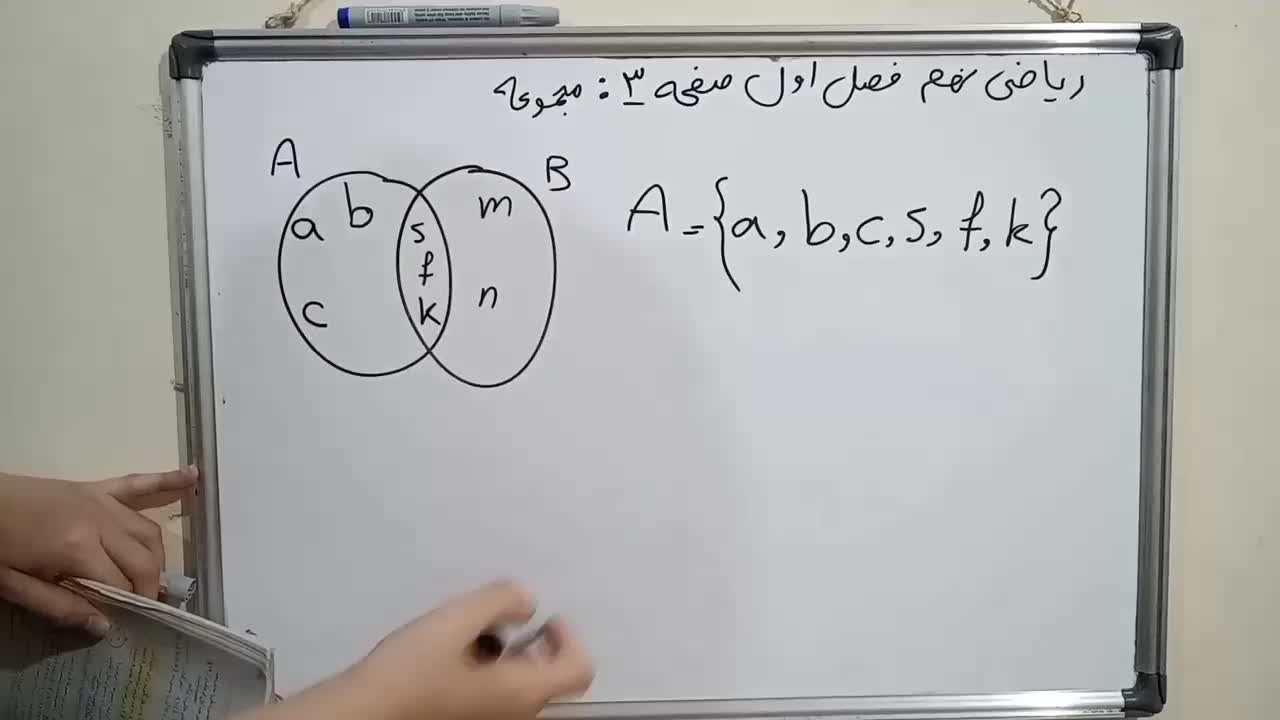 ریاضی نهم فصل اول صفحه ۳ : مجموعه
A
B
a b
c
s
f
k
m
n
A = {a, b, c, s, f, k}